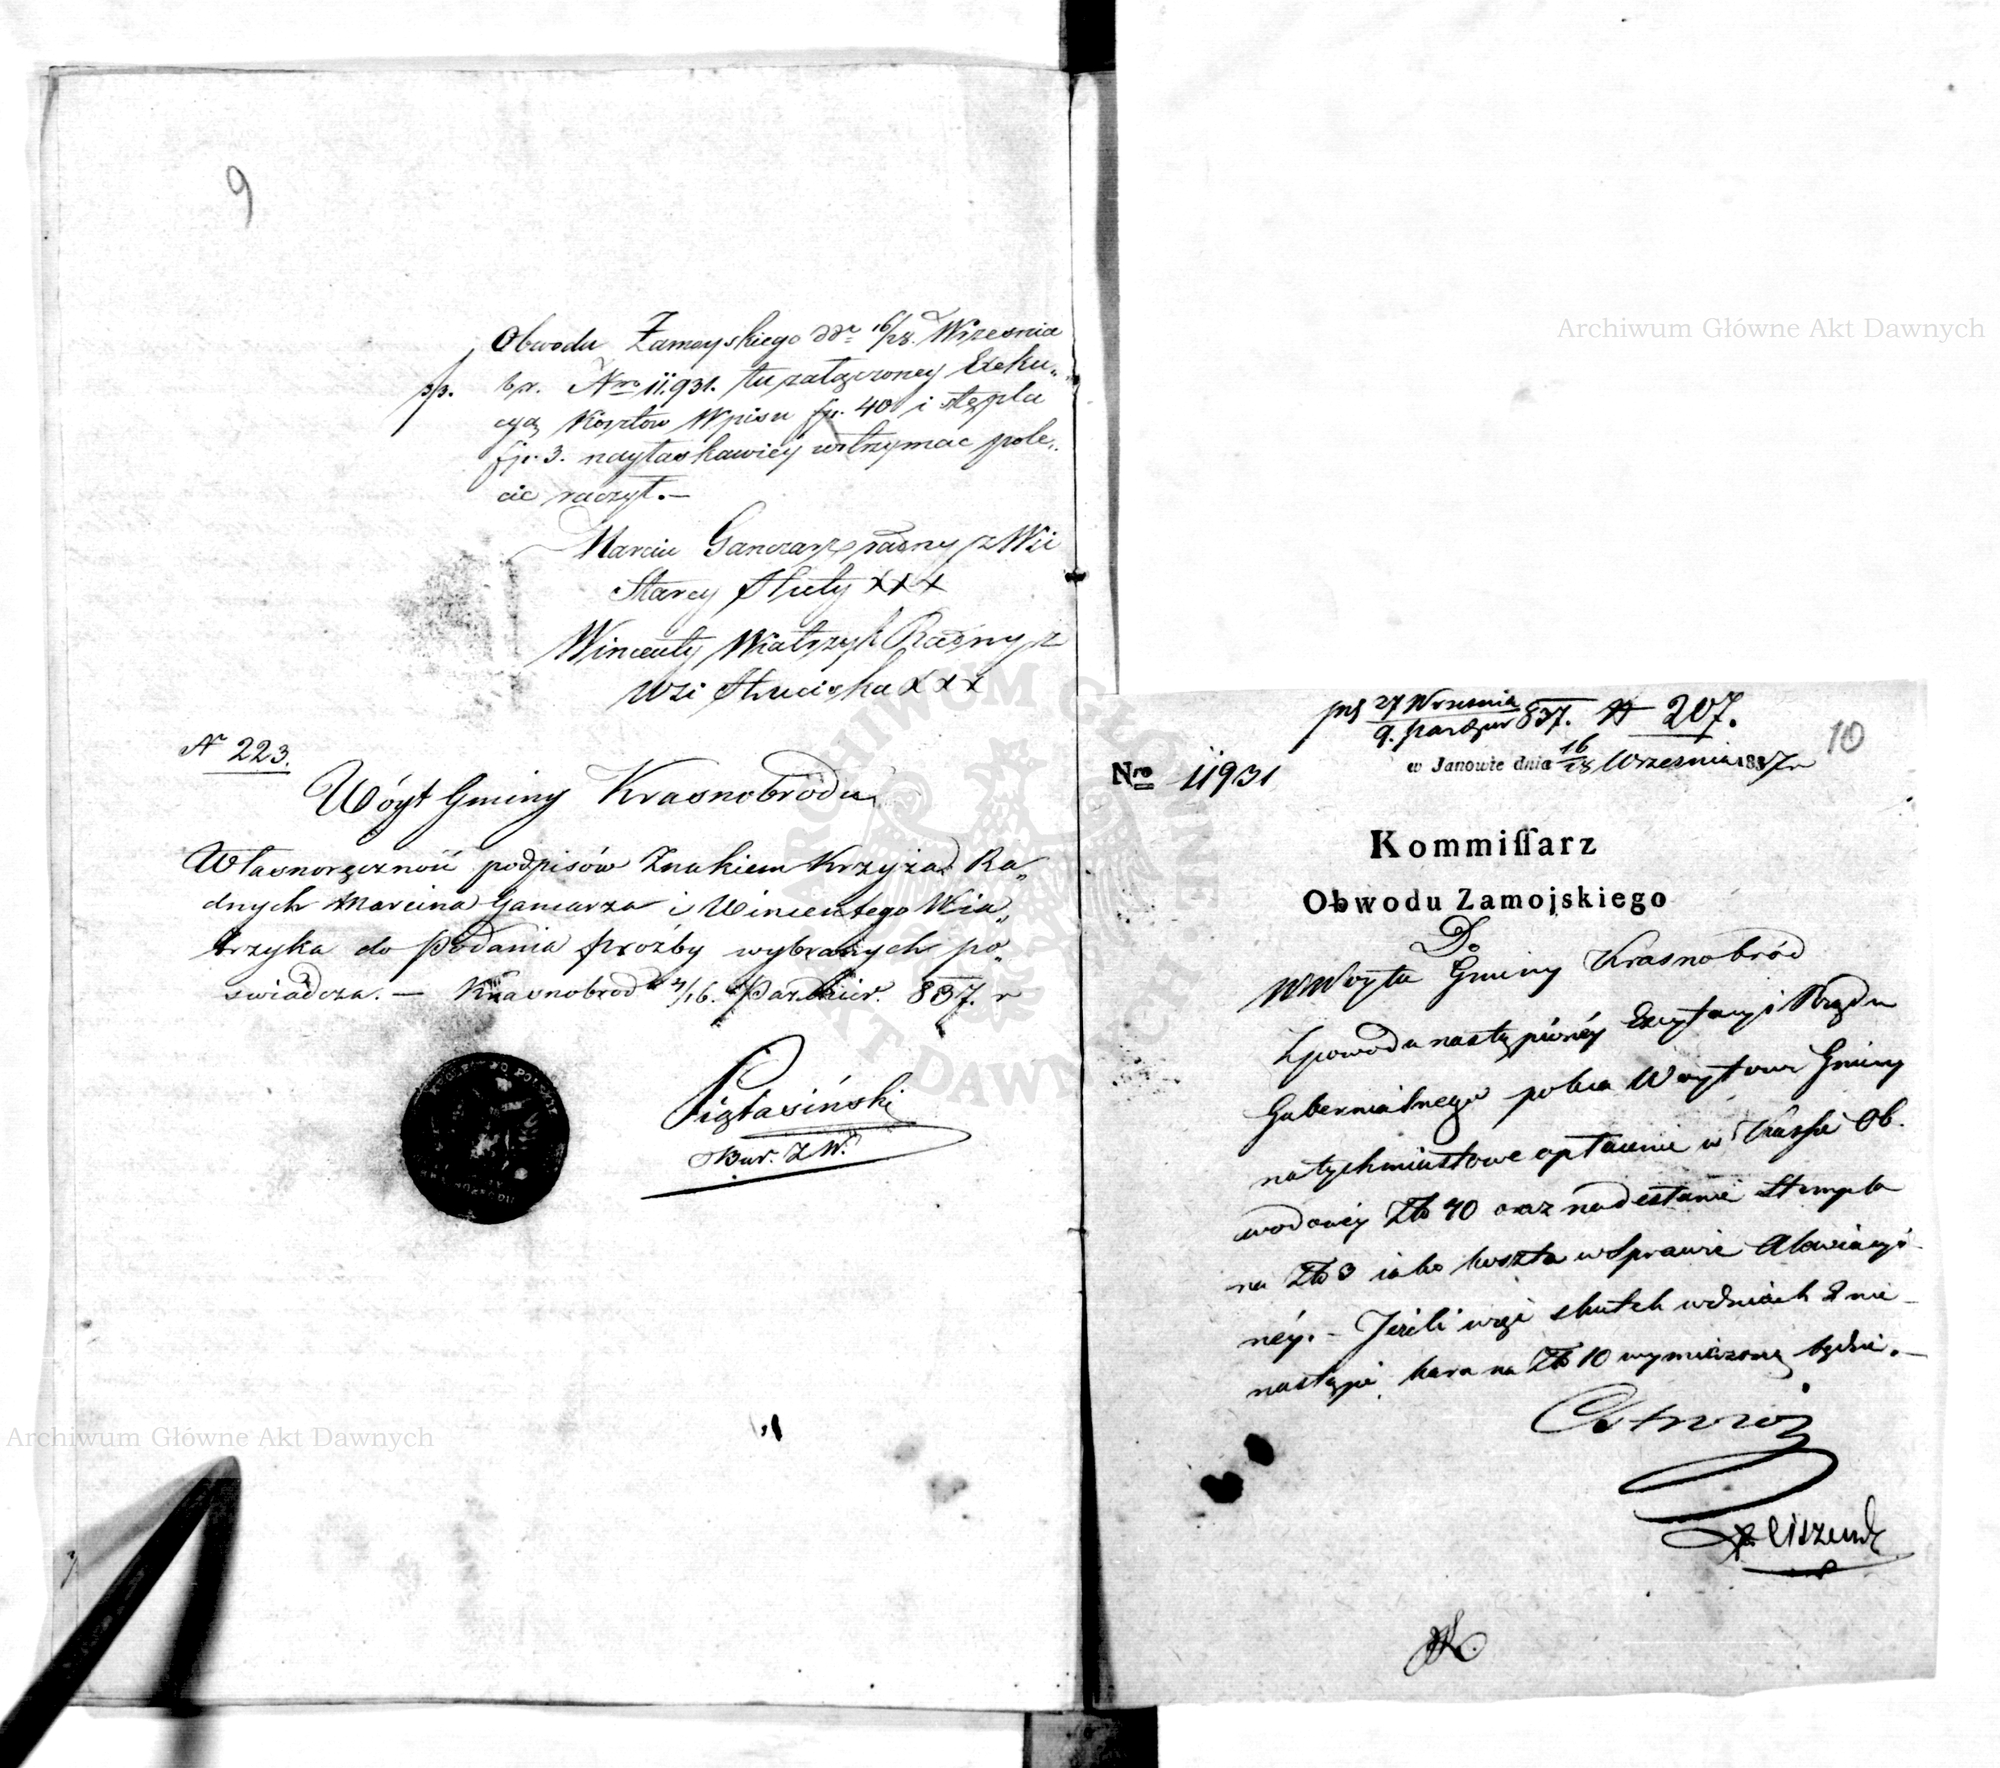 9
Obwodu Zamoyskiego dd. 16/28. Wrzesnia
b.r. Nro 11,931. tu załączoney Exeku„
cyą Kosztow Wpisu fp. 40 i stępla
fp. 3. nayłaskawiey wstrzymac pole„
cic raczył.—
Marcin Ganczarz radny z Wsi
Starey Huty XXX
Wincenty Wiatrzyk Radny z
Wsi Huciska XXX
N 223.
Wóyt Gminy Krasnobrodu
Własnoręczność podpisów Znakiem Krzyża Ra„
dnych Marcina Gancarza i Wincentego Wia„
trzyka do podania proźby wybranych po„
swiadcza. — Krasnobrod d 4/16. Pazdzier. 837. r
Piątasiński
Bur. Z. W.
Archiwum Główne Akt Dawnych
Archiwum Główne Akt Dawnych
ARCHIWUM GŁÓWNE AKT DAWNYCH
27 Wrzesnia
9. Pazdzier 837. N 207.
10
Nro 11931
w Janowie dnia 16/28 Wrzesnia 1837 r
Kommissarz
Obwodu Zamojskiego
Do
WWoyta Gminy Krasnobród
Z powodu nastąpionéy Excytacyi Rządu
Gubernialnego poleca Woytowi Gminy
natychmiastowe opłacenie w Kassie Ob.
wodowéy Złp 40 oraz nadesłanie Stempla
na Złp 3 jako koszta w Sprawie
néy. — Jeżeli więc skutek w dniach 2 nie
nastąpi kara na Złp 10 wymierzoną będzie.—